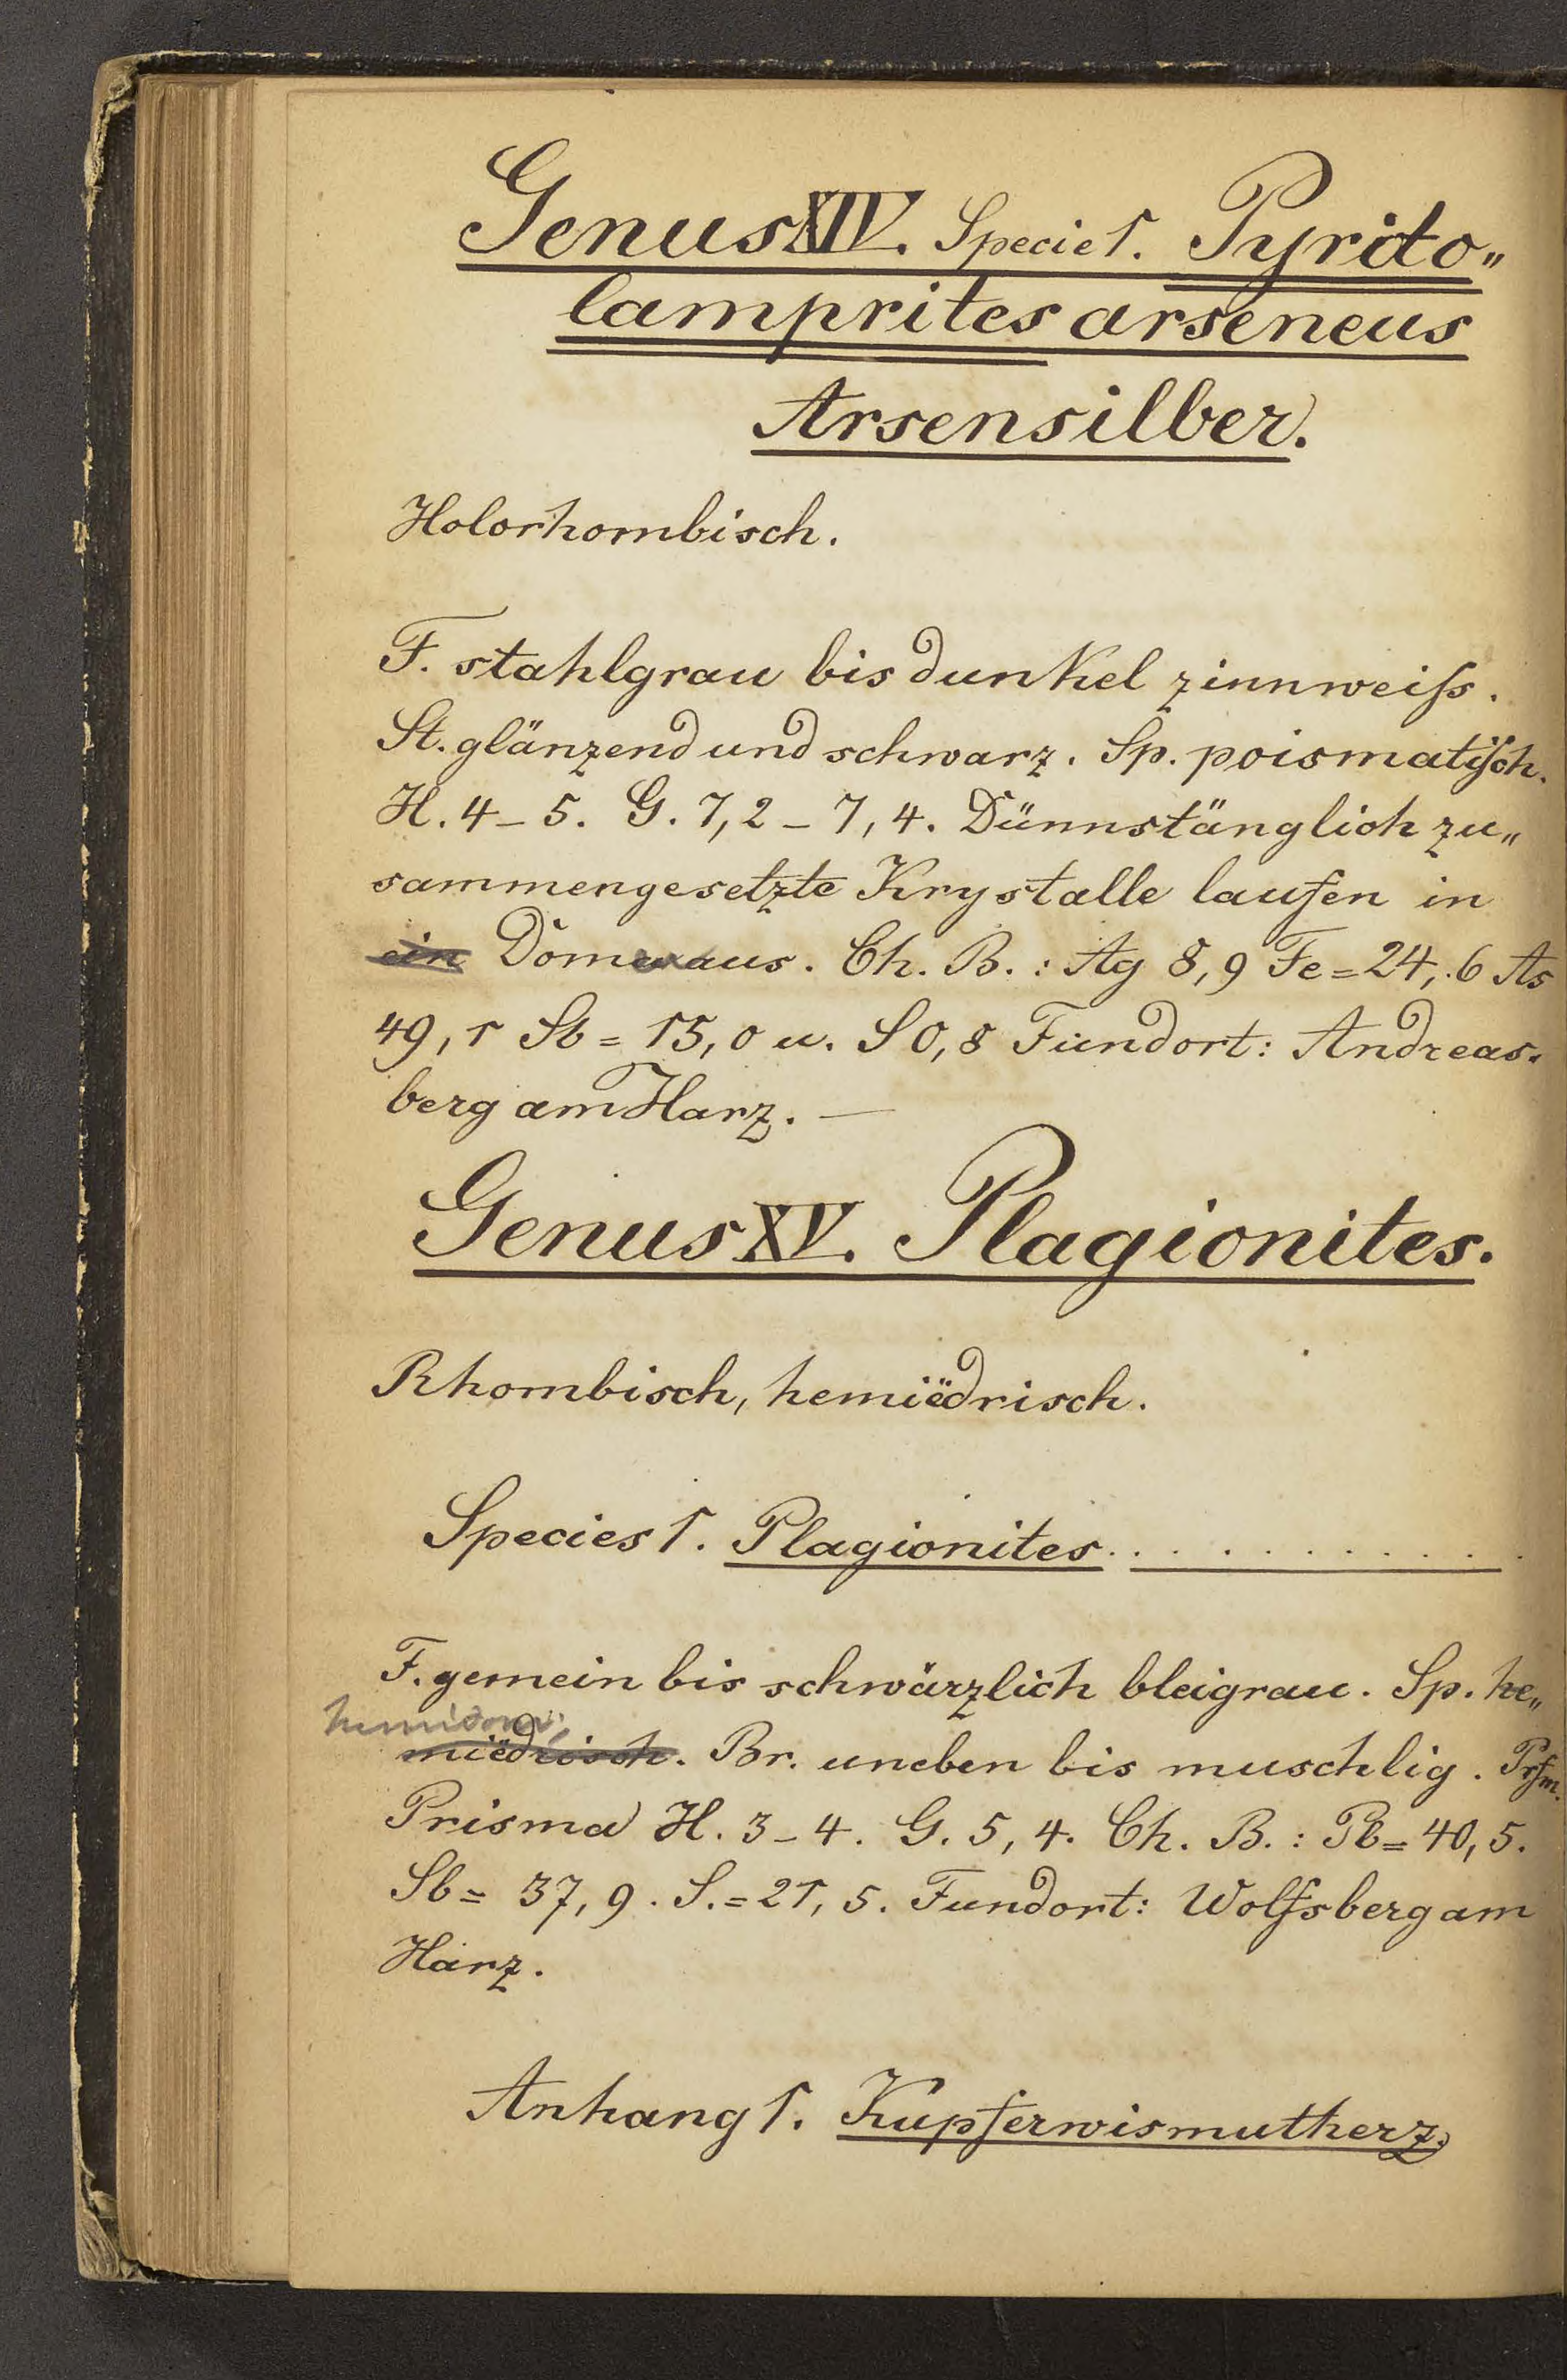 Genus XIV. Specie 1. Pyrito„
lamprites arseneus
Arsensilber.
Holorhombisch.
F. stahlgrau bis dunkel zinnweiſs.
St. glänzend und schwarz. Sp. poismatiſch.
H. 4_5. G. 7,2_7,4. Dünnstänglich zu„
sammengesetzte Krystalle laufen in
ein Dom aus. Ch. B.: Ag 8,9 Fe=24,.6 As
49,1 Sb=15,0 u. S 0,8 Fundort: Andreas.
berg am Harz. —
Genus XV. Plagionites.
Rhombisch, hemiëdrisch.
Species 1. Plagionites. . . . . . . . . . .
F. gemein bis schwärzlich bleigrau. Sp. he„
miëdrisch. Br. uneben bis muschlig.
Prisma H. 3_4. G. 5,4. Ch. B.: Pb=40,5.
Sb= 37,9. S.=21,5. Fundort: Wolfsberg am
Harz.
Anhang 1. Kupferwismutherz.